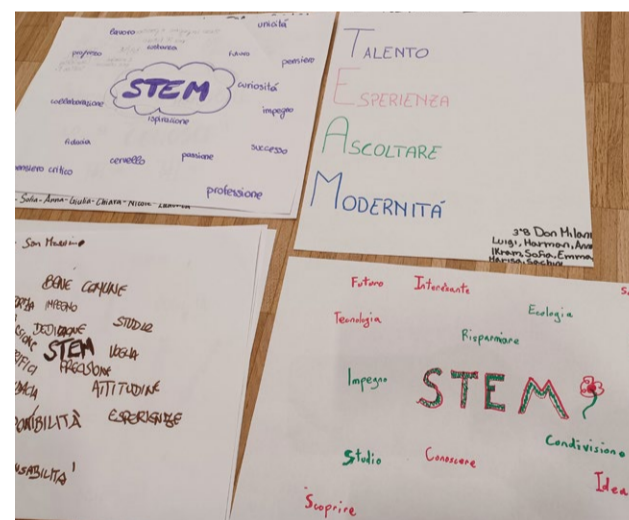 unicitá
lavoro
costanza
futuro
progresso
pensiero
STEM
curiositá
collaborazione
impegno
ispirazione
fiducia
successo
cervello
passione
pensiero critico
professione
Sofia-Anna-Giulia-Chiara-Nicole-
TALENTO
ESPERIENZA
ASCOLTARE
MODERNITÁ
3°B Don Milani
Luigi, Harman, Anna
IKram, Sofia, Emma
San Massimo
BENE COMUNE
IMPEGNO
DEDIZIONE
STUDIO
STEM
VOGLIA
PRECISIONE
ATTITUDINE
ESPERIENZE
Futuro
Interessante
Tecnologia
Ecologia
Risparmiare
Impegno
STEM
Condivisione
Studio
Conoscere
Idea
Scoprire